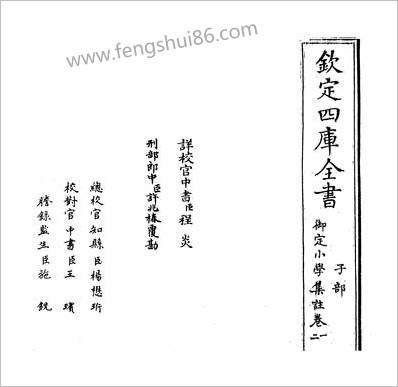 www.fengshui86.com
欽定四庫全書
子部
御定小學集註卷一二
詳校官中書臣程炎
刑部郎中臣許兆椿覆勘
總校官知縣臣楊懋珩
校對官中書臣王璸
謄錄監生臣施銳